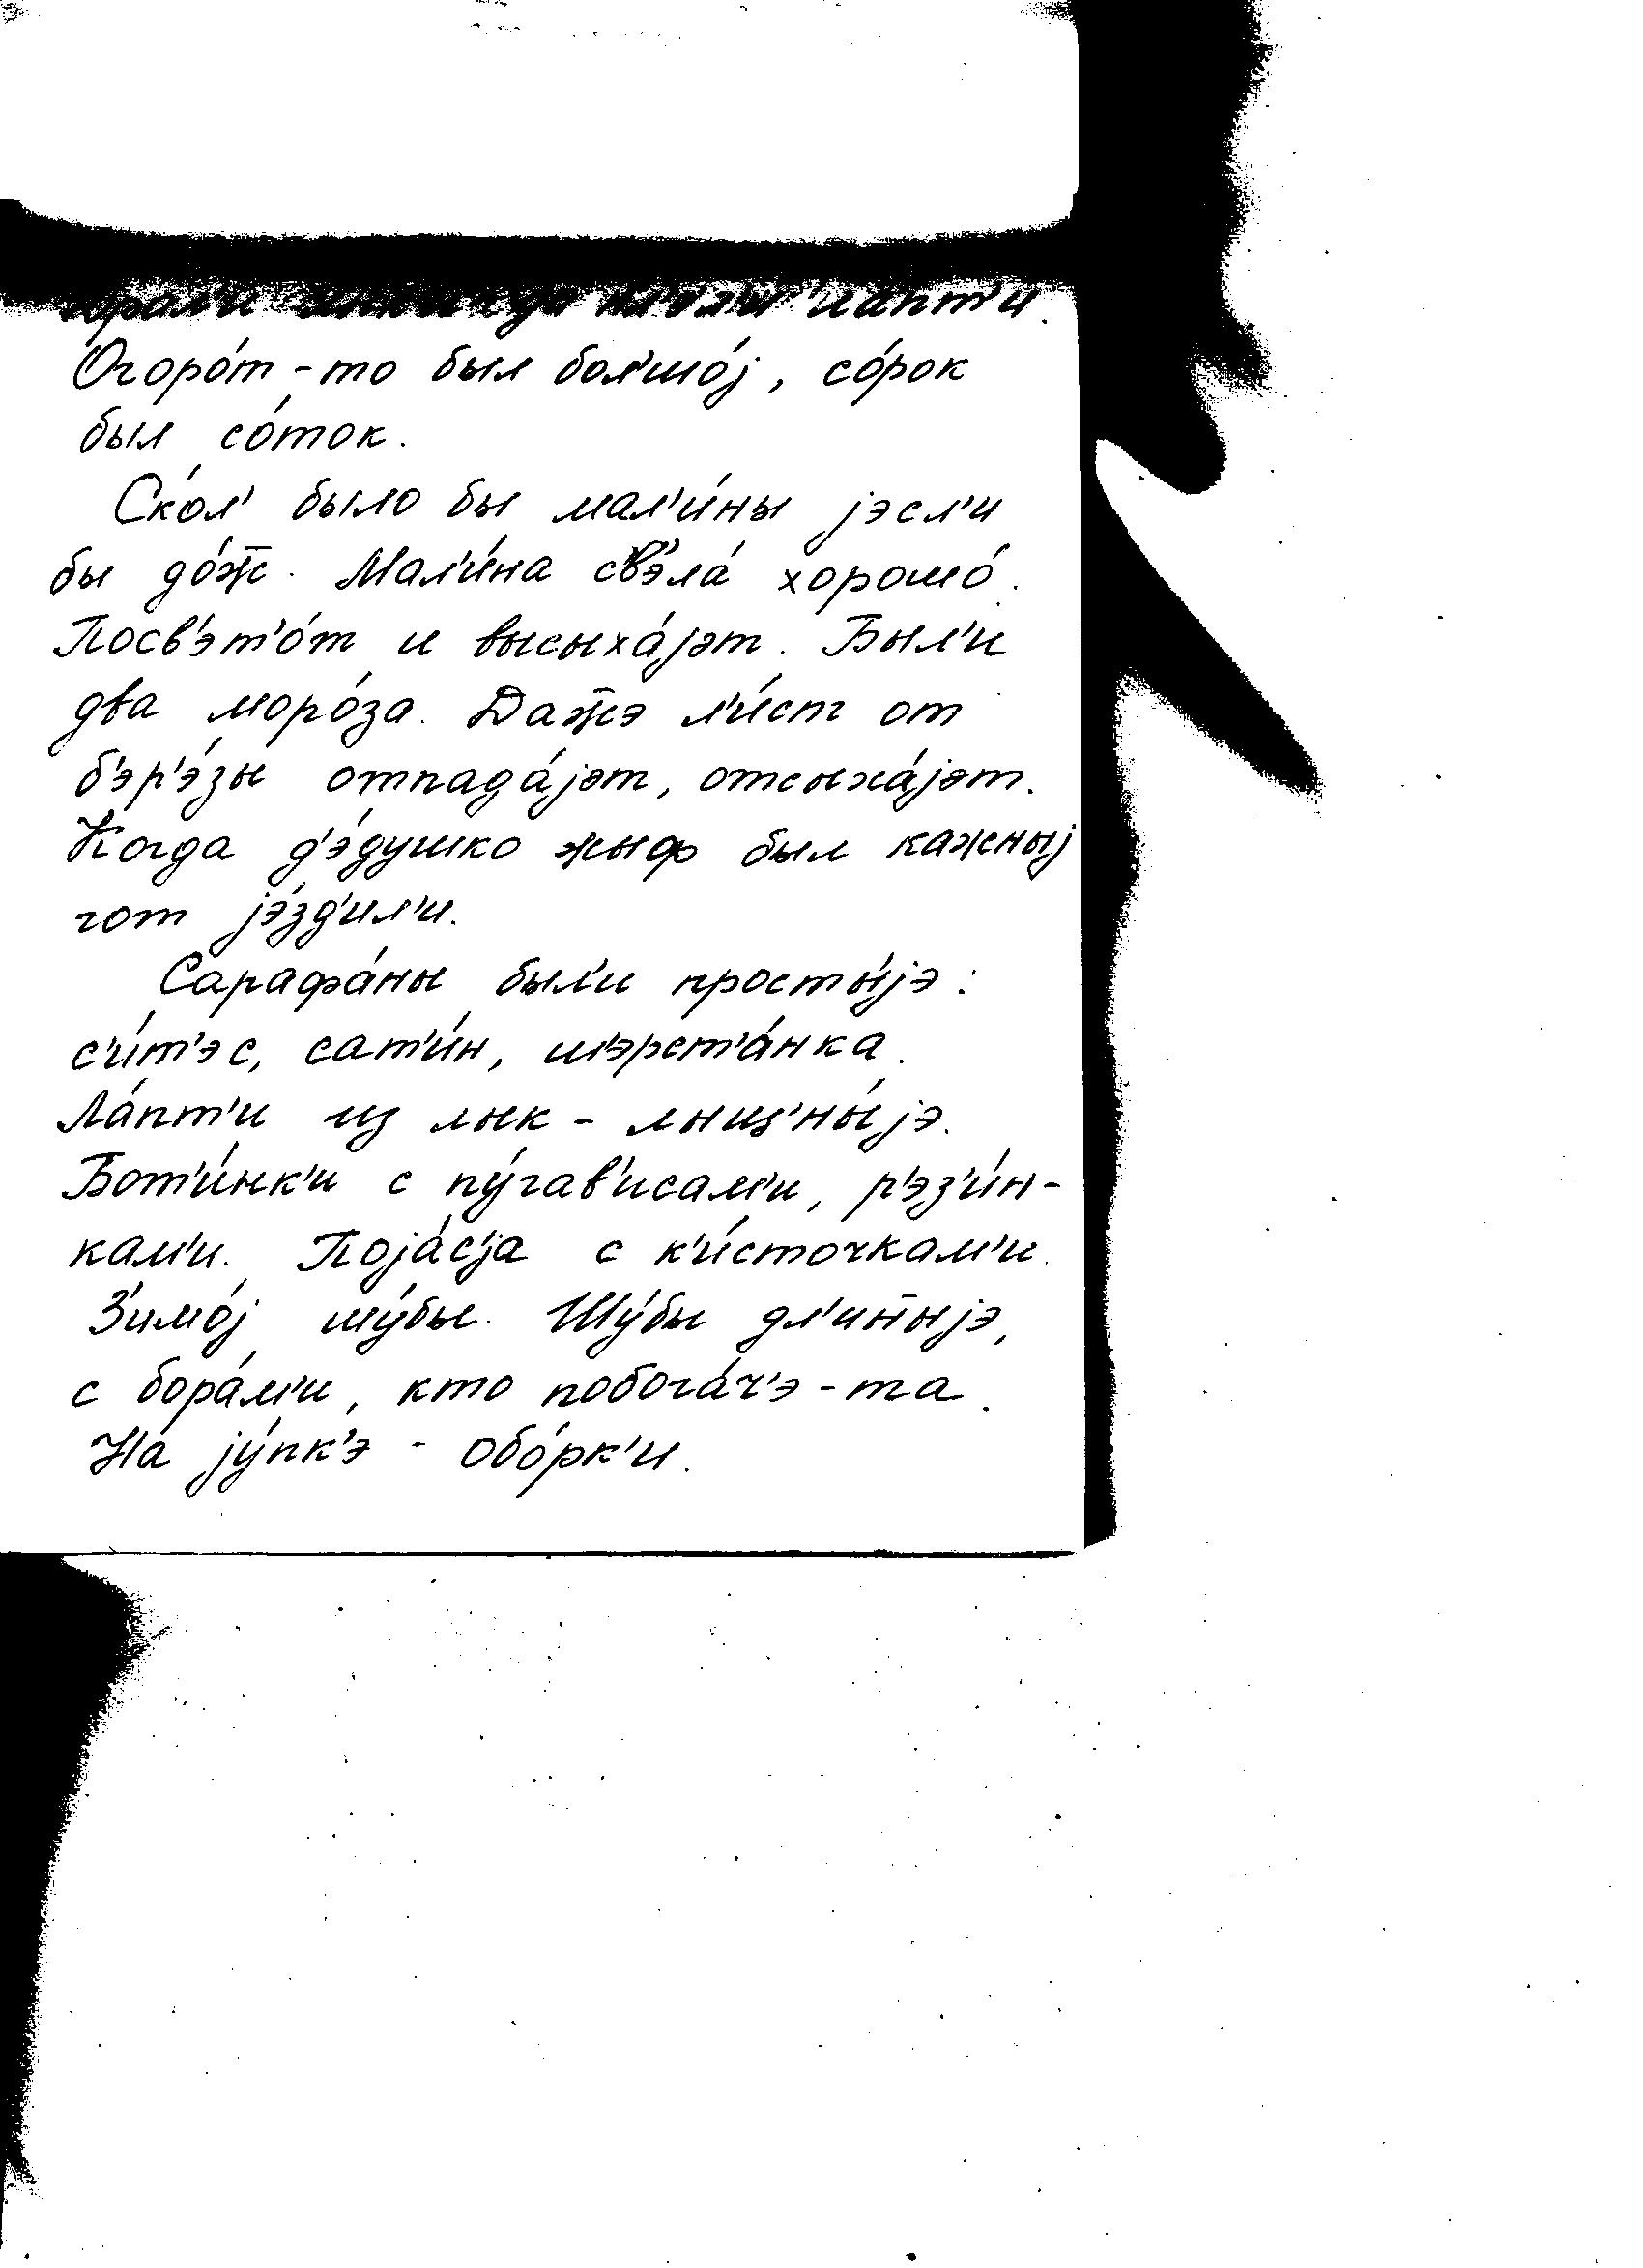 лапт'и.
Огоро́т-то был бол'шо́j, со́рок
был со́ток.
Ско́л' было бы мал'и́ны jэсл'и
бы до́ж̅. Мал'и́на св'эла́ хорошо́.
Посв'эт'о́т и высыха́jэт. Был'и
два моро́за. Даж̅э л'и́ст от
б'эр'э́зы отпада́jэт, отсыха́jэт.
Когда д'э́душко жыф был кажныj
гот jэ́зд'ил'и.
Сарафа́ны был'и просты́jэ:
с'и́т'эс, сат'и́н, шэрст'а́нка.
Ла́пт'и из лык - лыц'ны́jэ.
Бот'и́нк'и с пу́гав'исам'и, р'эз'и́н-
кам'и. Поjа́с'jа с к'и́сточкам'и.
З'имо́j шу́бы. Шу́бы дл'ин̅ыjэ,
с бора́м'и, кто побога́ч'э-та.
На jу́пк'э - обо́рк'и.